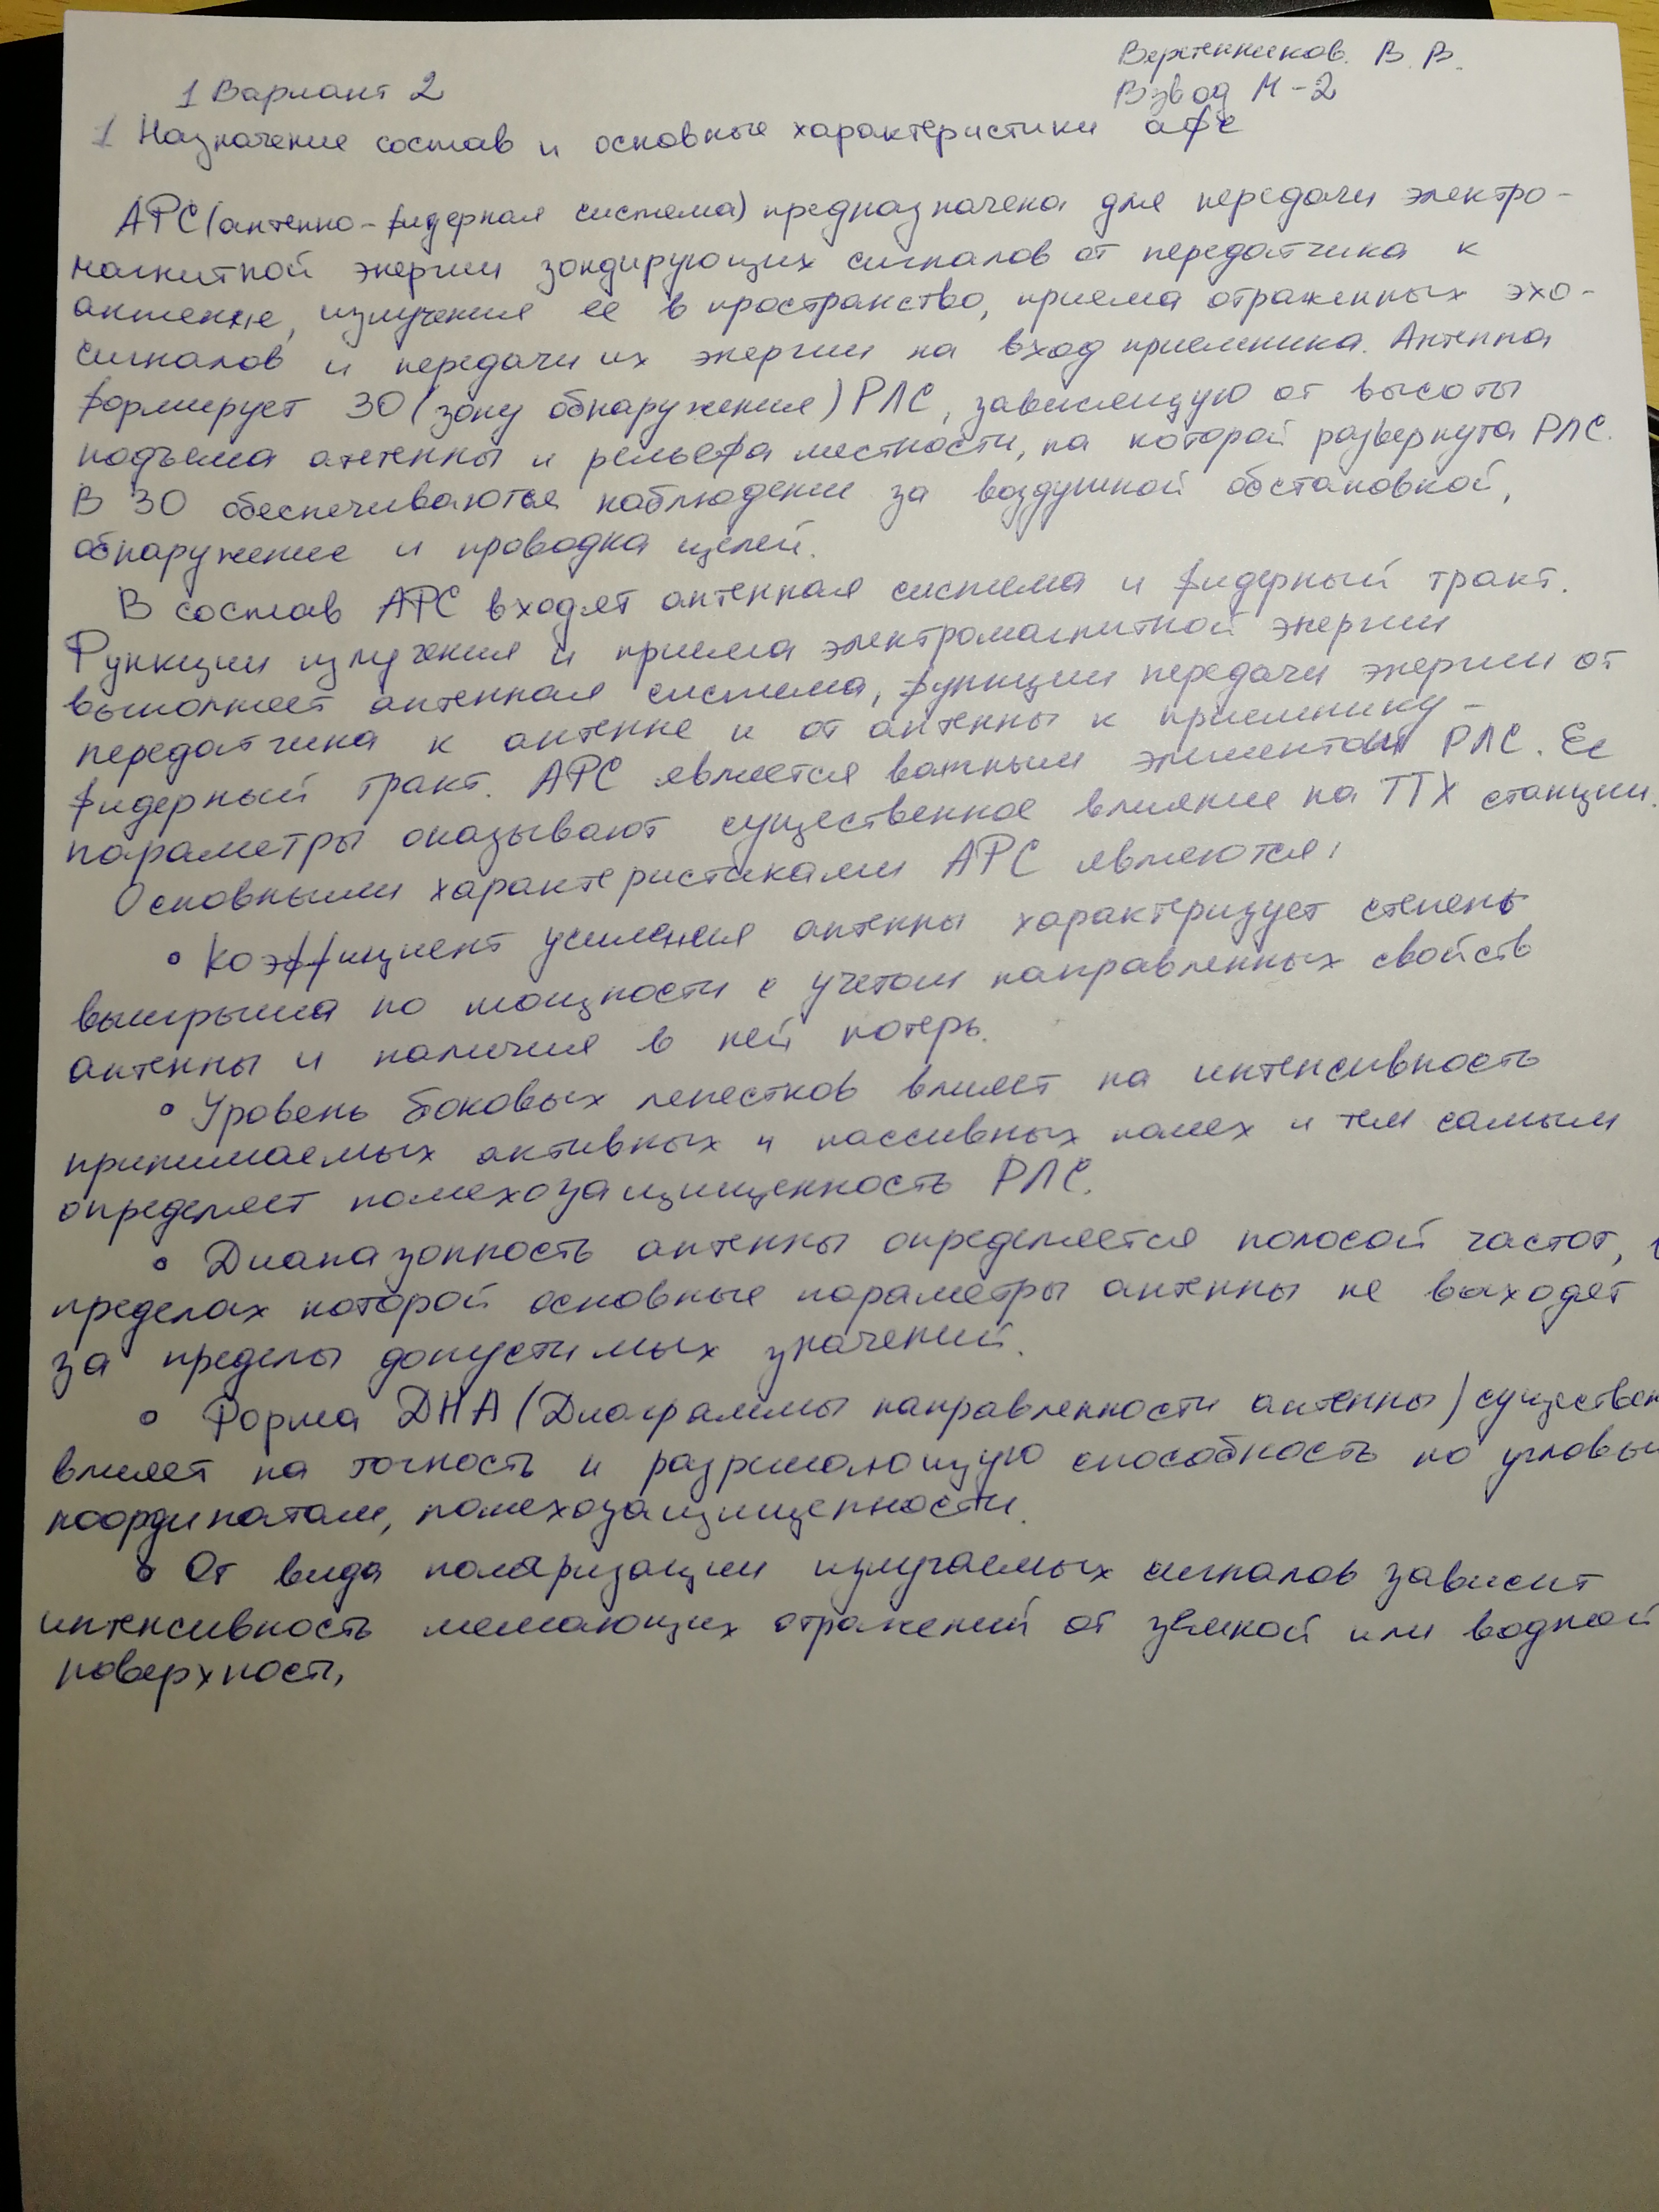 Веретенников. В. В.
Взвод М-2
1 Вариант 2
1 Назначение состав и основные характеристики афс
АФС (антенно-фидерная система) предназначена для передачи электро-
магнитной энергии зондирующих сигналов от передатчика к
антенне, излучения ее в пространство, приема отраженных эхо-
сигналов и передачи их энергии на вход приемника. Антенна
формирует ЗО (зону обнаружения) РЛС, зависящую от высоты
подъема антенны и рельефа местности, на которой развернута РЛС.
В ЗО обеспечиваются наблюдение за воздушной обстановкой,
обнаружение и проводка целей.
В состав АФС входят антенная система и фидерный тракт.
Функции излучения и приема электромагнитной энергии
выполняет антенная система, функции передачи энергии от
передатчика к антенне и от антенны к приемнику -
фидерный тракт. АФС является важным элементом РЛС. Ее
параметры оказывают существенное влияние на ТТХ станции.
Основными характеристиками АФС являются:
• Коэффициент усиления антенны характеризует степень
выигрыша по мощности с учетом направленных свойств
антенны и наличия в ней потерь.
• Уровень боковых лепестков влияет на интенсивность
принимаемых активных и пассивных помех и тем самым
определяет помехозащищенность РЛС.
• Диапазонность антенны определяется полосой частот,
пределах которой основные параметры антенны не выходят
за пределы допустимых значений.
• Форма ДНА (Диаграммы направленности антенны) существен
влияет на точность и разрешающую способность по угловы
координатам, помехозащищенности.
• От вида поляризации излучаемых сигналов зависит
интенсивность мешающих отражений от земной или водной
поверхности,